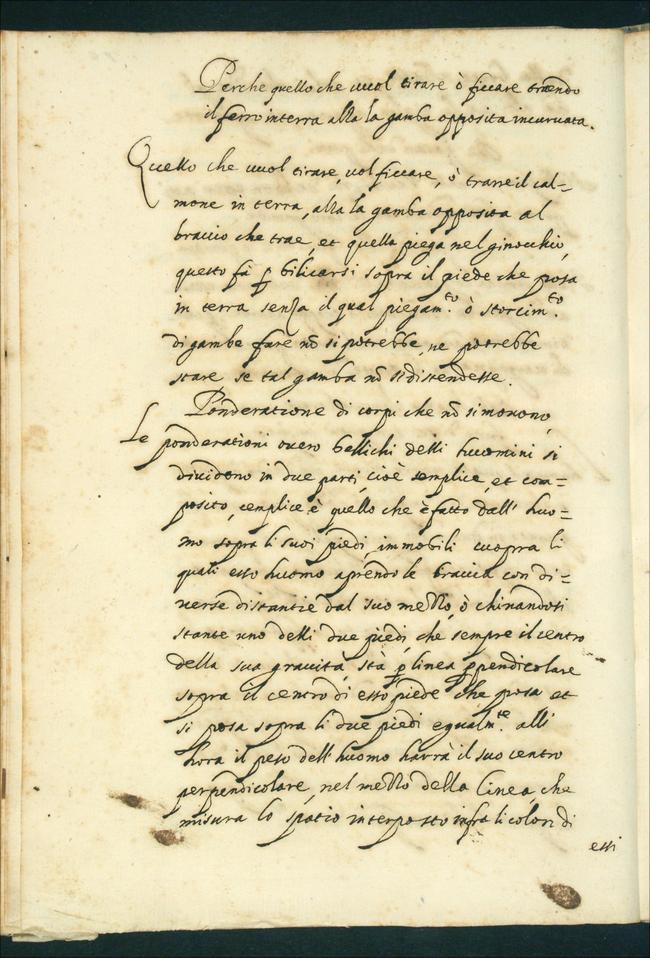 Perche quello che vuol tirare ò ficcare traendo
il ferro in terra alza la gamba opposita incuruata.
Quello che vuol tirare, vol ficcare, ò trarre il cal=
mone in terra, alza la gamba opposita al
braccio che trae, et quella piega nel ginochio,
questo fa p bilicarsi sopra il piede che posa
in terra senza il qual piegam.to ò storcim.to
di gambe fare nõ si potrebbe, ne potrebbe
stare se tal gamba nõ si distendesse.
Ponderatione di corpi che nõ si mouono,
Le ponderationi ouero bellichi delli huomini si
diuidono in due parti, cioè semplice, et com=
posito, semplice è quello che è fatto dall' huo=
mo sopra li suoi piedi, immobili suopra li
quali esso huomo aprendo le braccia con di=
uerse distantie dal suo mezzo, ò chinandosi
stante uno delli due piedi, che sempre il centro
della sua grauità, stà p linea ppendicolare
sopra il centro di esso piede che posa et
si posa sopra li due piedi egualm.te all'
hora il peso dell' huomo harrà il suo centro
perpendicolare, nel mezzo della linea, che
misura lo spatio interposto infra li colori di
essi